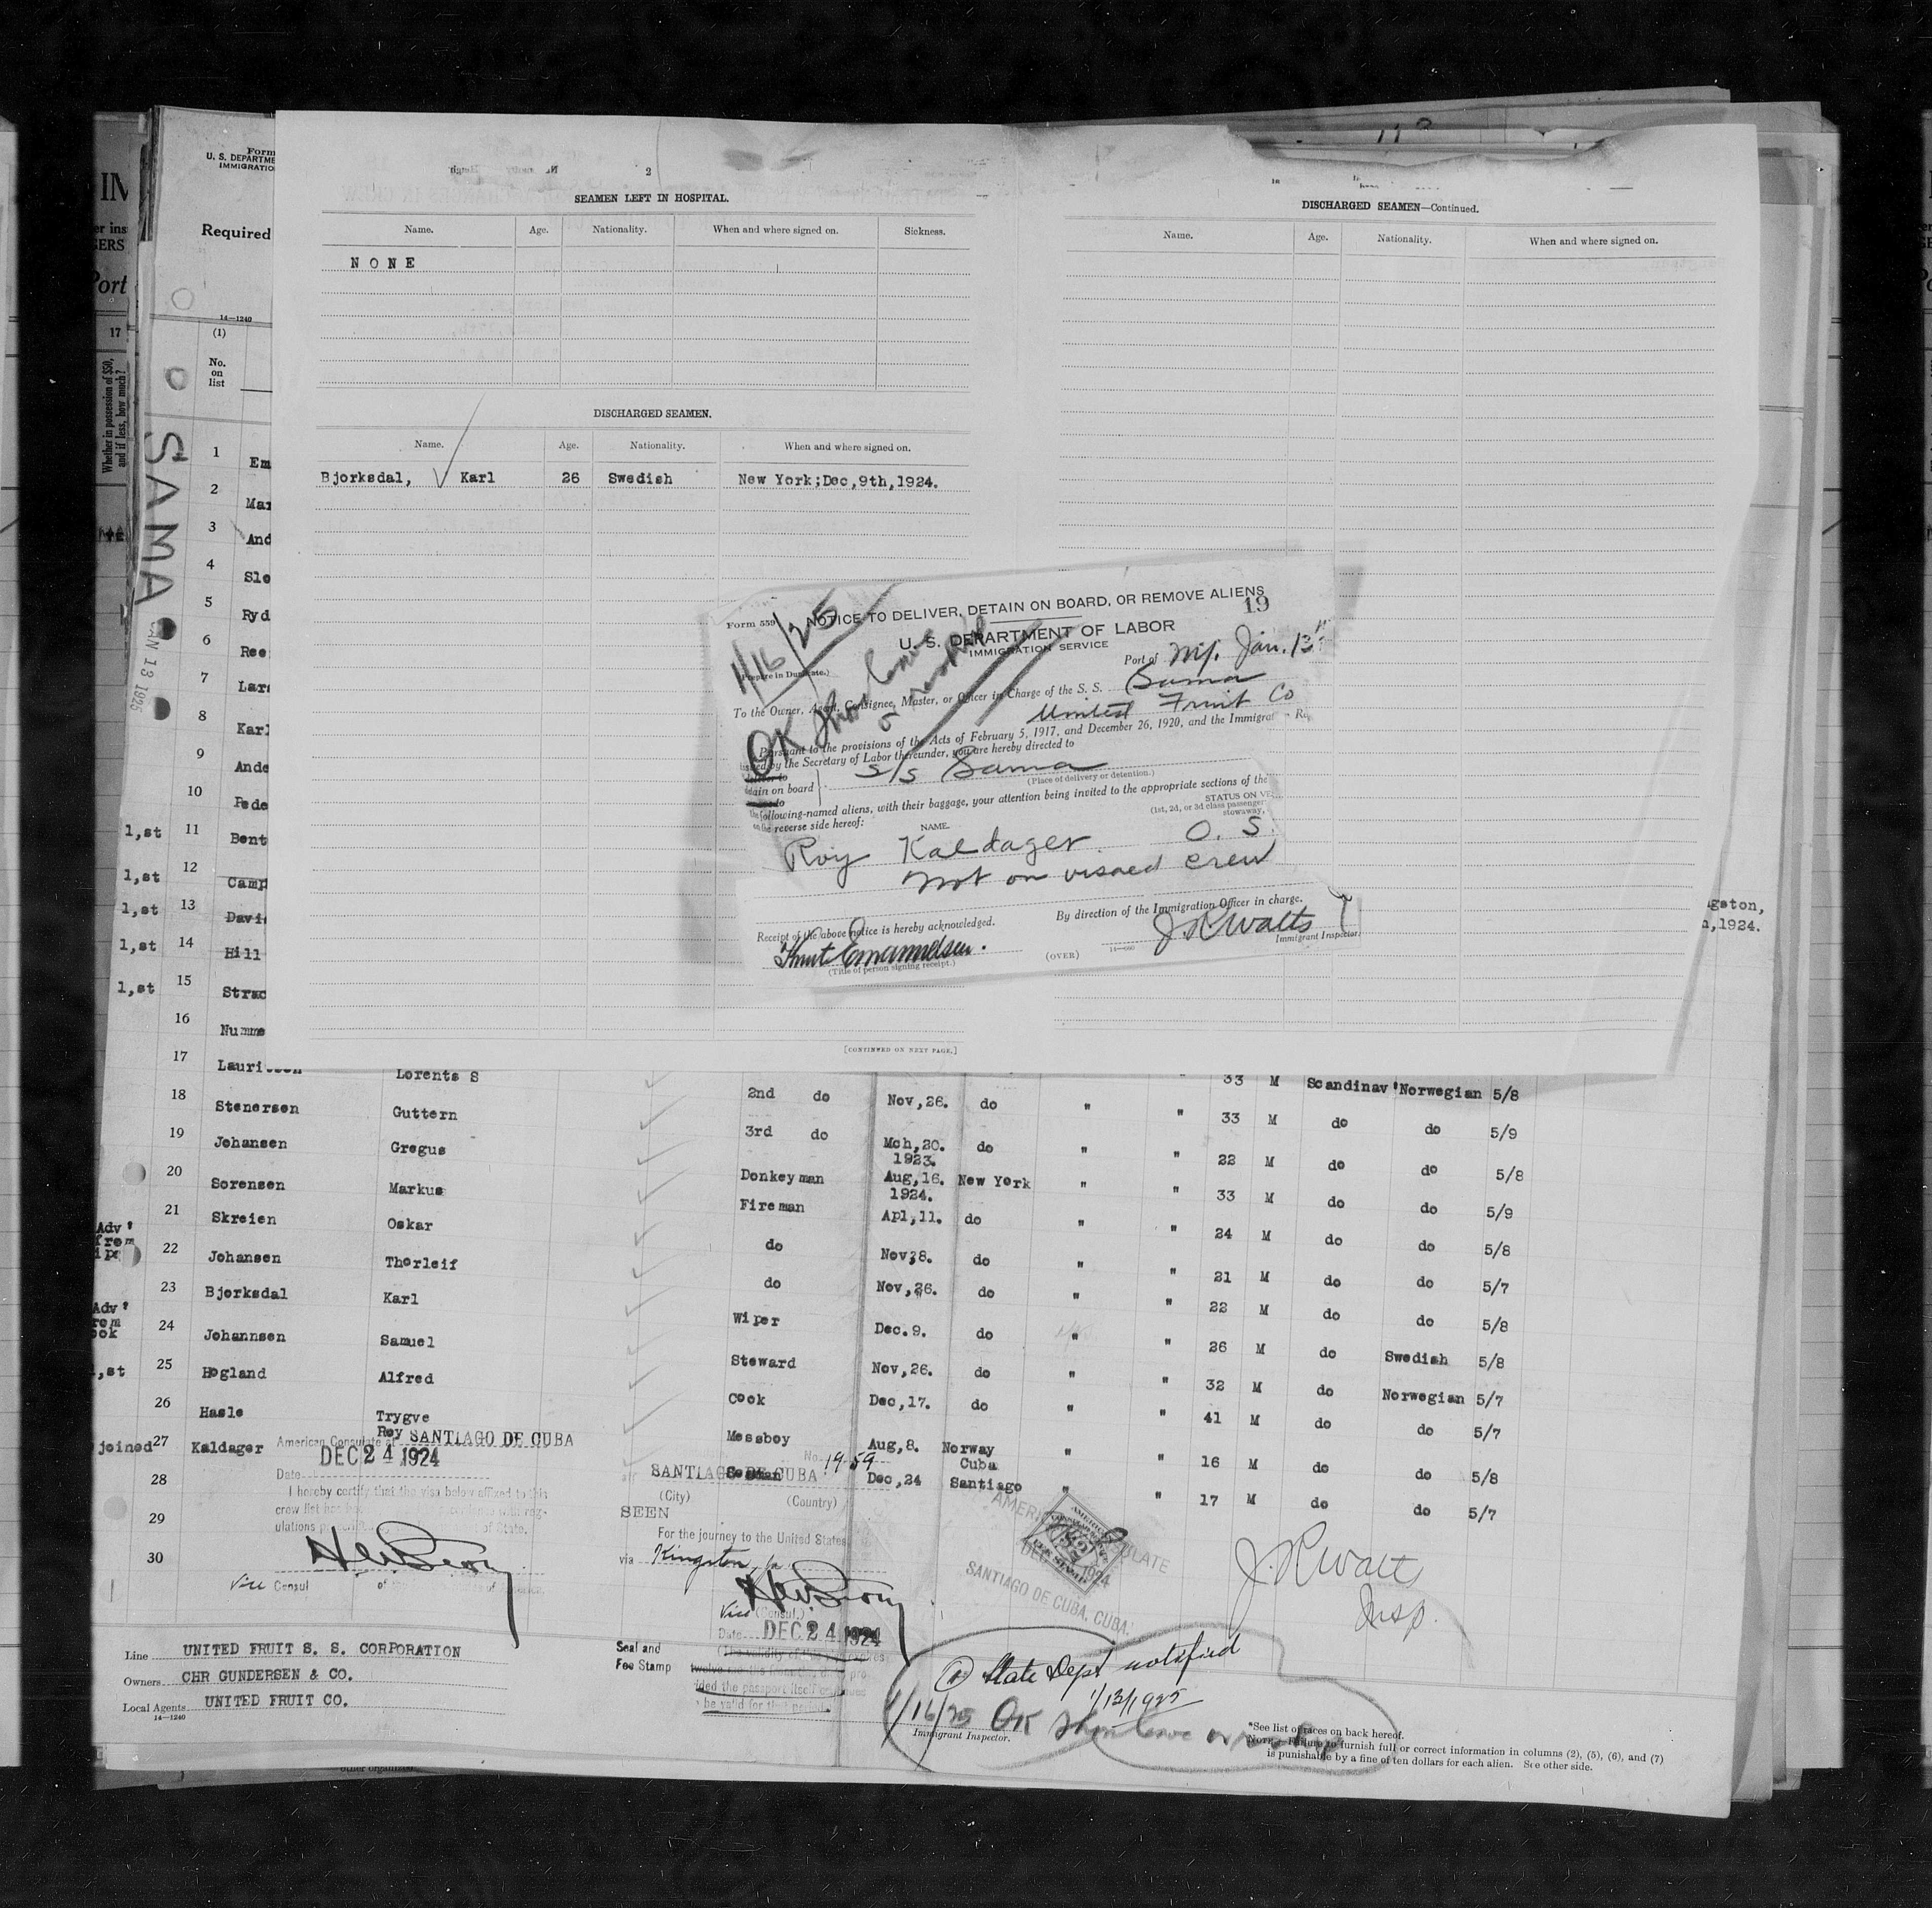 2
SEAMEN LEFT IN HOSPITAL.
Name. Age. Nationality. When and where signed on. Sickness.
NONE
DISCHARGED SEAMEN.
Name. Age. Nationality. When and where signed on.
Bjorksdal, Karl 26 Swedish New York;Dec,9th,1924.
[CONTINUED ON NEXT PAGE.]
DISCHARGED SEAMEN—Continued.
Name. Age. Nationality. When and where signed on.
Form 559
NOTICE TO DELIVER, DETAIN ON BOARD, OR REMOVE ALIENS
19
U. S. DEPARTMENT OF LABOR
IMMIGRATION SERVICE
1/16/25
(Prepare in Duplicate.)
Port of NY. Jan. 13
To the Owner, Agent, Consignee, Master, or Officer in Charge of the S. S. Sama
United Fruit Co
OK shore leave or
Pursuant to the provisions of the Acts of February 5, 1917, and December 26, 1920, and the Immigrat
issued by the Secretary of Labor thereunder, you are hereby directed to
deliver to
detain on board S/S Sama
(Place of delivery or detention.)
the following-named aliens, with their baggage, your attention being invited to the appropriate sections of the
on the reverse side hereof:
NAME.
STATUS ON VE
(1st, 2d, or 3d class passenger
stowaway,
Roy Kaldager O. S.
not on visaed crew
Receipt of the above notice is hereby acknowledged.
Knut Emanuelsen.
(Title of person signing receipt.)
By direction of the Immigration Officer in charge.
J.R.Watts
Immigrant Inspector.
(OVER)
Form
U. S. DEPARTME
IMMIGRATIO
Required
14—1240
(1)
No.
on
list
IN
er ins
GERS
Port
17
Whether in possession of $50,
and if less, how much?
SAMA
JAN 13 1925
1 Em
2 Mar
3 And
4 Sle
5 Ryd
6 Ree
7 Lars
8 Karl
9 Ande
10 Pede
1,st 11 Bent
1,st 12 Camp
1,st 13 Davi
1,st 14 Hill
1,st 15 Strac
16 Numme
gston,
,1924.
17 Lauri Lorents S 33 M Scandinav'Norwegian 5/8
18 Stenersen Guttern 2nd do Nov,26. do " " 33 M do do 5/9
19 Johansen Gregus 3rd do Mch,20. 1923. do " " 22 M do do 5/8
20 Sorensen Markus Donkeyman Aug,16. 1924. New York " " 33 M do do 5/9
21 Skreien Oskar Fireman Apl,11. do " " 24 M do do 5/8
Adv'
from
22 Johansen Thorleif do Nov,8. do " " 21 M do do 5/7
23 Bjorksdal Karl do Nov,26. do " " 22 M do do 5/8
Adv'
24 Johannsen Samuel Wiper Dec.9. do " " 26 M do Swedish 5/8
,st 25 Hogland Alfred Steward Nov,26. do " " 32 M do Norwegian 5/7
26 Hasle Trygve Cook Dec,17. do " " 41 M do do 5/7
joined 27 Kaldager Roy Messboy Aug,8. Norway " " 16 M do do 5/8
28 Seaman Dec,24 Cuba Santiago " " 17 M do do 5/7
29
30
American Consulate at SANTIAGO DE CUBA
DEC 24 1924
Date
I hereby certify that the visa below affixed to this
Vice Consul
No. 1959
SANTIAGO DE CUBA
(City) (Country)
SEEN
For the journey to the United States
via Kingston, Ja
Vice (Consul.)
Date DEC 24 1924
Seal and
Fee Stamp
AMERICAN CONSULATE
DEC 1924
SANTIAGO DE CUBA, CUBA.
J.R.Watts
Insp.
Line UNITED FRUIT S. S. CORPORATION
Owners CHR GUNDERSEN & CO.
Local Agents UNITED FRUIT CO.
14—1240
State Dept notified
1/13/1925
1/16/25 OK shore leave or
Immigrant Inspector.
*See list of races on back hereof.
NOTE.—Failure to furnish full or correct information in columns (2), (5), (6), and (7)
is punishable by a fine of ten dollars for each alien. See other side.